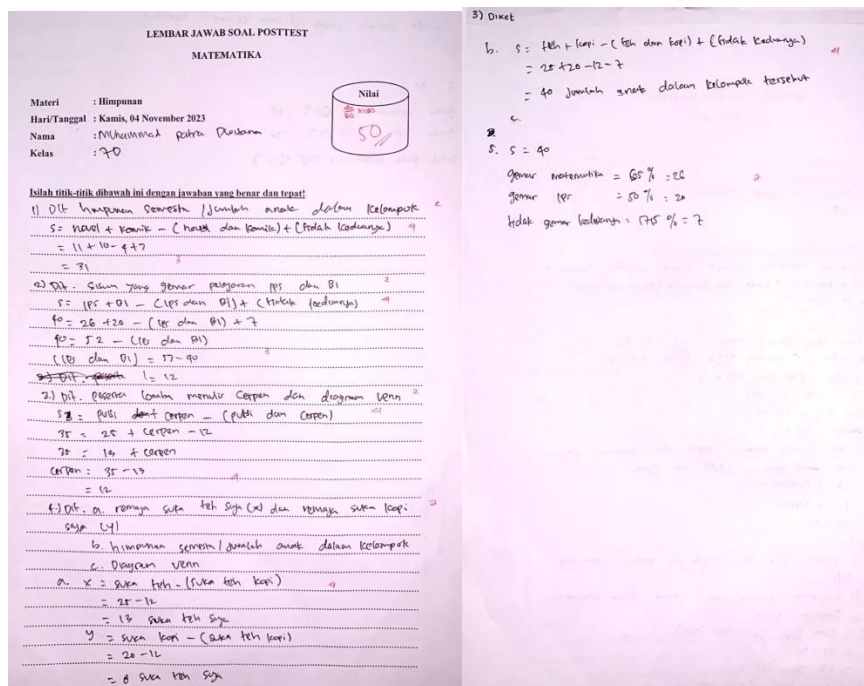 LEMBAR JAWAB SOAL POSTTEST
MATEMATIKA
Nilai
50
Materi : Himpunan
Hari/Tanggal : Kamis, 04 November 2023
Nama : Muhammad
Kelas : 70
Isilah titik-titik dibawah ini dengan jawaban yang benar dan tepat!
1) Dit himpunan semesta / jumlah anak dalam kelompok
S = novel + komik - (novel dan komik) + (tidak keduanya)
= 11 + 10 - 4 + 7
= 31
2) Dit. Siswa yang gemar pelajaran IPS dan BI
S = IPS + BI - (IPS dan BI) + (tidak keduanya)
40 = 26 + 20 - (IPS dan BI) + 7
40 = 52 - (IPS dan BI)
(IPS dan BI) = 52 - 40
= 12
3.) Dit. peserta lomba menulis cerpen dan diagram venn
S = puisi + cerpen - (puisi dan cerpen)
35 = 25 + cerpen - 12
35 = 13 + cerpen
cerpen = 35 - 13
= 12
4.) Dit. a. remaja suka teh saja (x) dan remaja suka kopi
saja (y)
b. himpunan semesta / jumlah anak dalam kelompok
c. Diagram venn
a. x = suka teh - (suka teh kopi)
= 25 - 12
= 13 suka teh saja
y = suka kopi - (suka teh kopi)
= 20 - 12
= 8 suka teh saja
3) Diket
b. S = teh + kopi - (teh dan kopi) + (tidak keduanya)
= 25 + 20 - 12 - 7
= 40 jumlah anak dalam kelompok tersebut
c.
5. S = 40
gemar matematika = 65% = 26
gemar IPS = 50% = 20
tidak gemar keduanya = 175% = 7